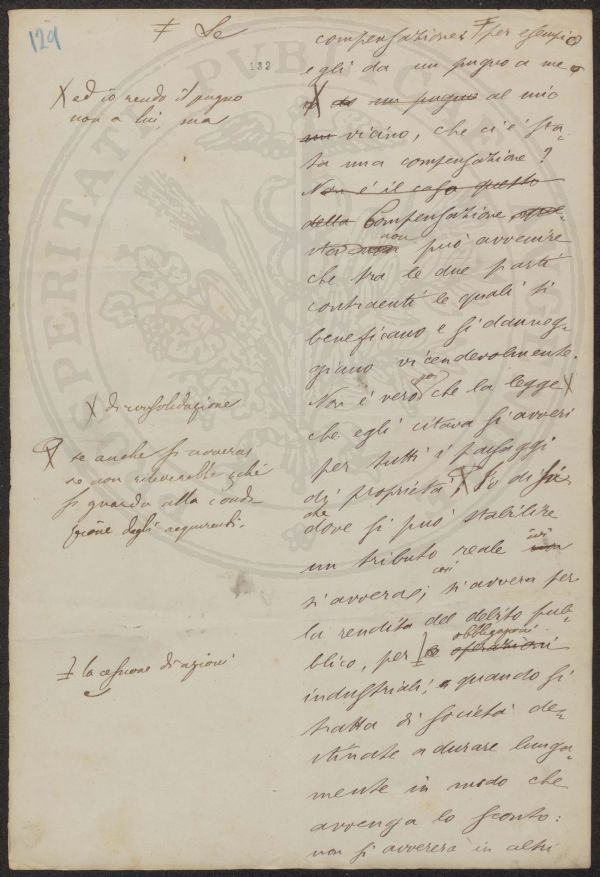 129
‡ Se
132
X ed io rendo il pugno
non a lui, ma
X di consolidazione
se anche si avveras
se non rileverebbe, chè
si guarda alla condi-
zione degli acquirenti.
‡ la cessione di azioni
compensazione; ‡ per esempio
egli da un pugno a me
X do un pugno al mio
vicino, che ci è sta-
ta una compensazione?
Non è il caso questo
della Compensazione que-
sta non può avvenire
che tra le due parti
contraenti le quali si
beneficano e si danneg-
giano vicendevolmente.
Non è vero poi che la legge X
che egli citava si avveri
per tutti i passaggi
di proprietà. X Io dissi
che dove si può stabilire
un tributo reale ivi
si avvera; così si avvera per
la rendita del debito pub-
blico, per ‡ le obbligazioni operazioni
industriali, quando si
tratta di società de-
stinate a durare lunga-
mente in modo che
avvenga lo sconto:
non si avvererà in altri